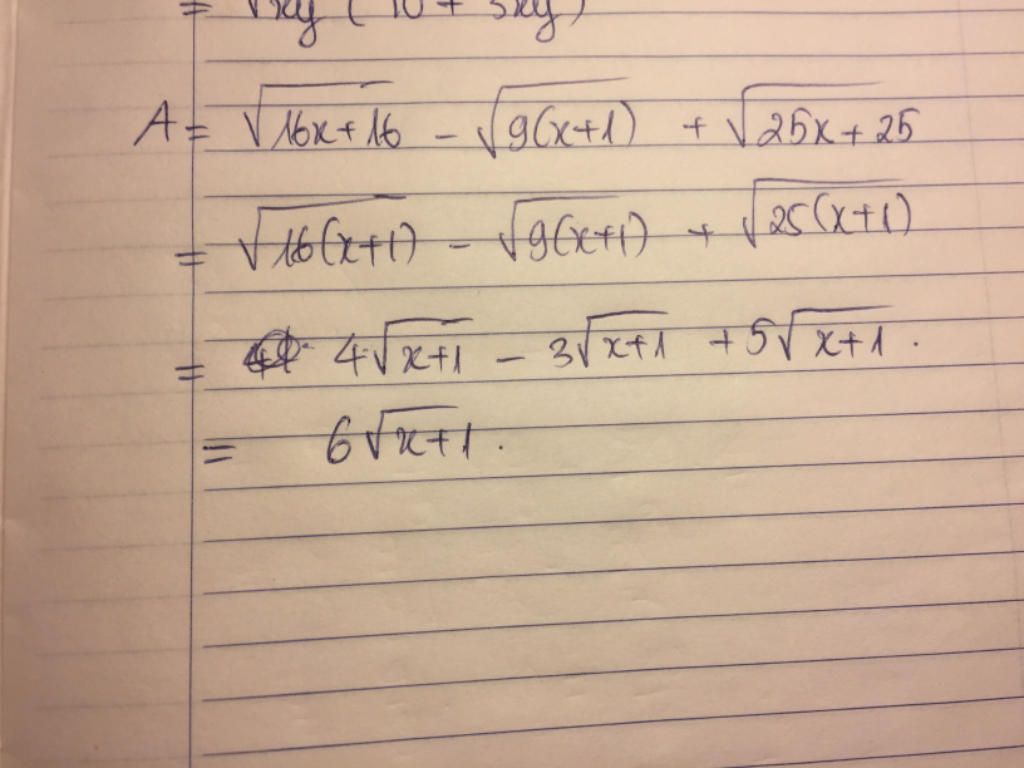 = √xy ( 10 + 3xy )
A = √16x+16 - √9(x+1) + √25x+25
= √16(x+1) - √9(x+1) + √25(x+1)
= 4√x+1 - 3√x+1 + 5√x+1 .
= 6√x+1 .